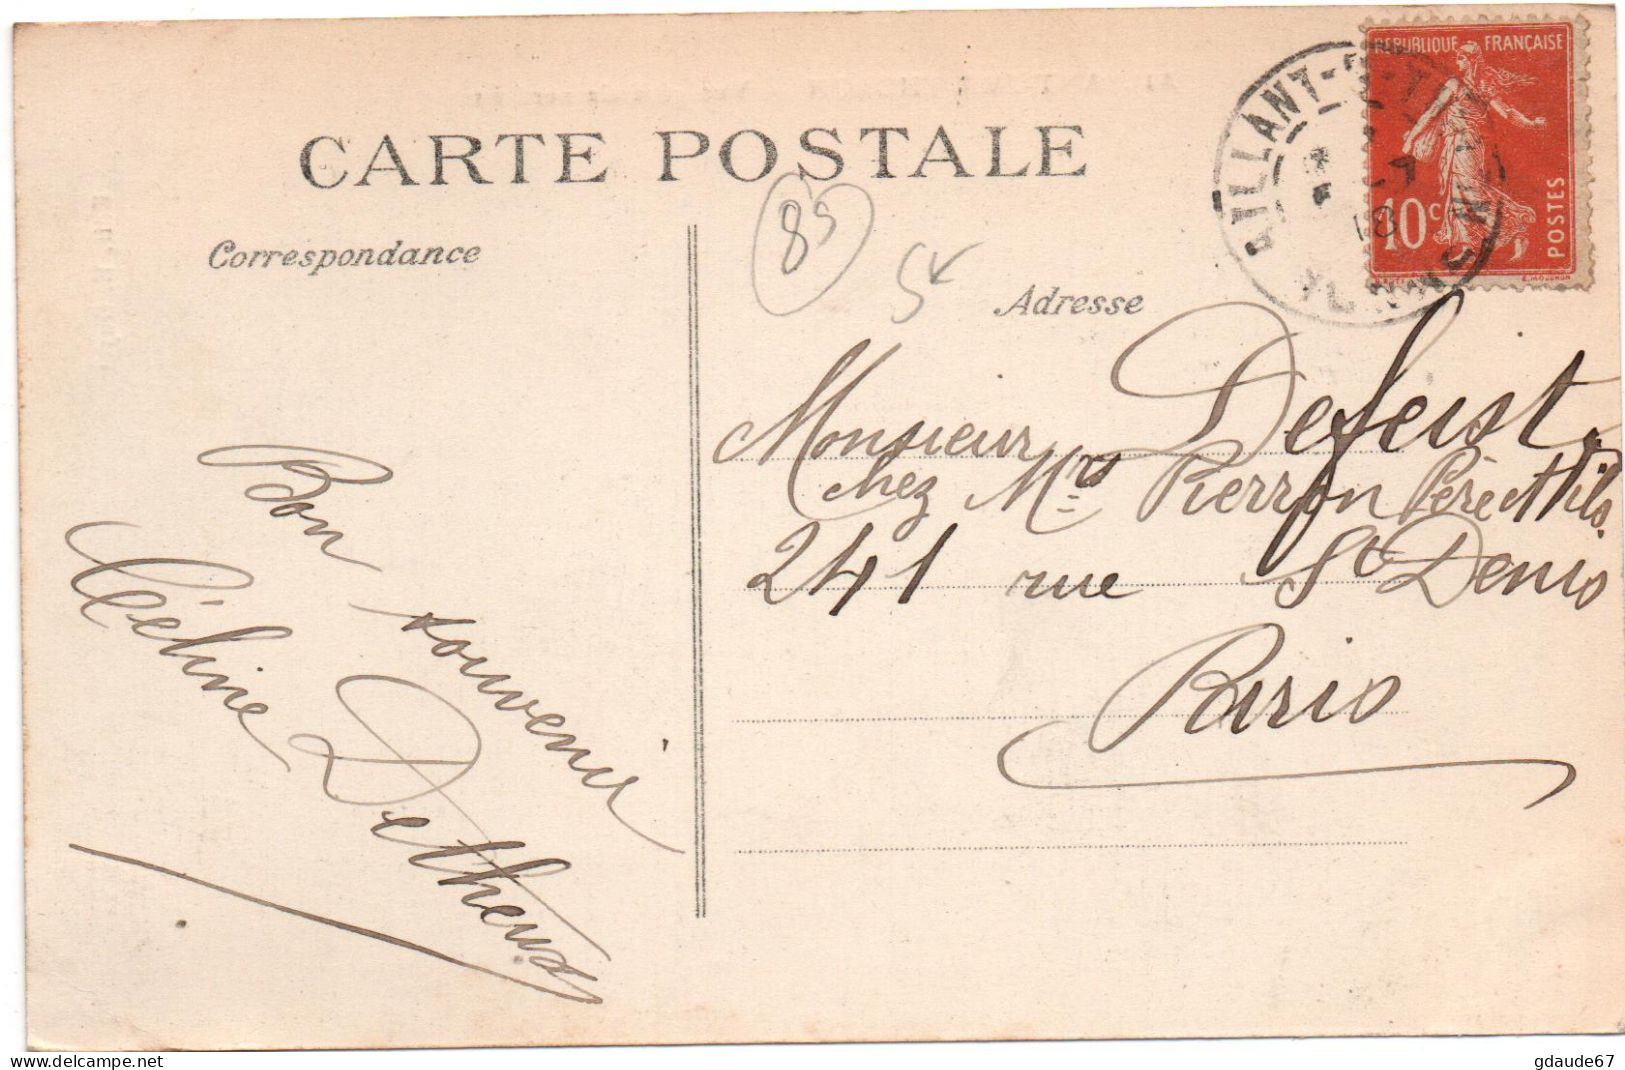 CARTE POSTALE
Correspondance
Adresse
85
5
RÉPUBLIQUE FRANÇAISE
10c
POSTES
AILLANT-S-T
YONNE
Monsieur Defeist.
Chez Mrs Pierron Père et Fils
241 rue St Denis
Paris
Bon souvenir
Céline Detheux
delcampe.net
gdaude67